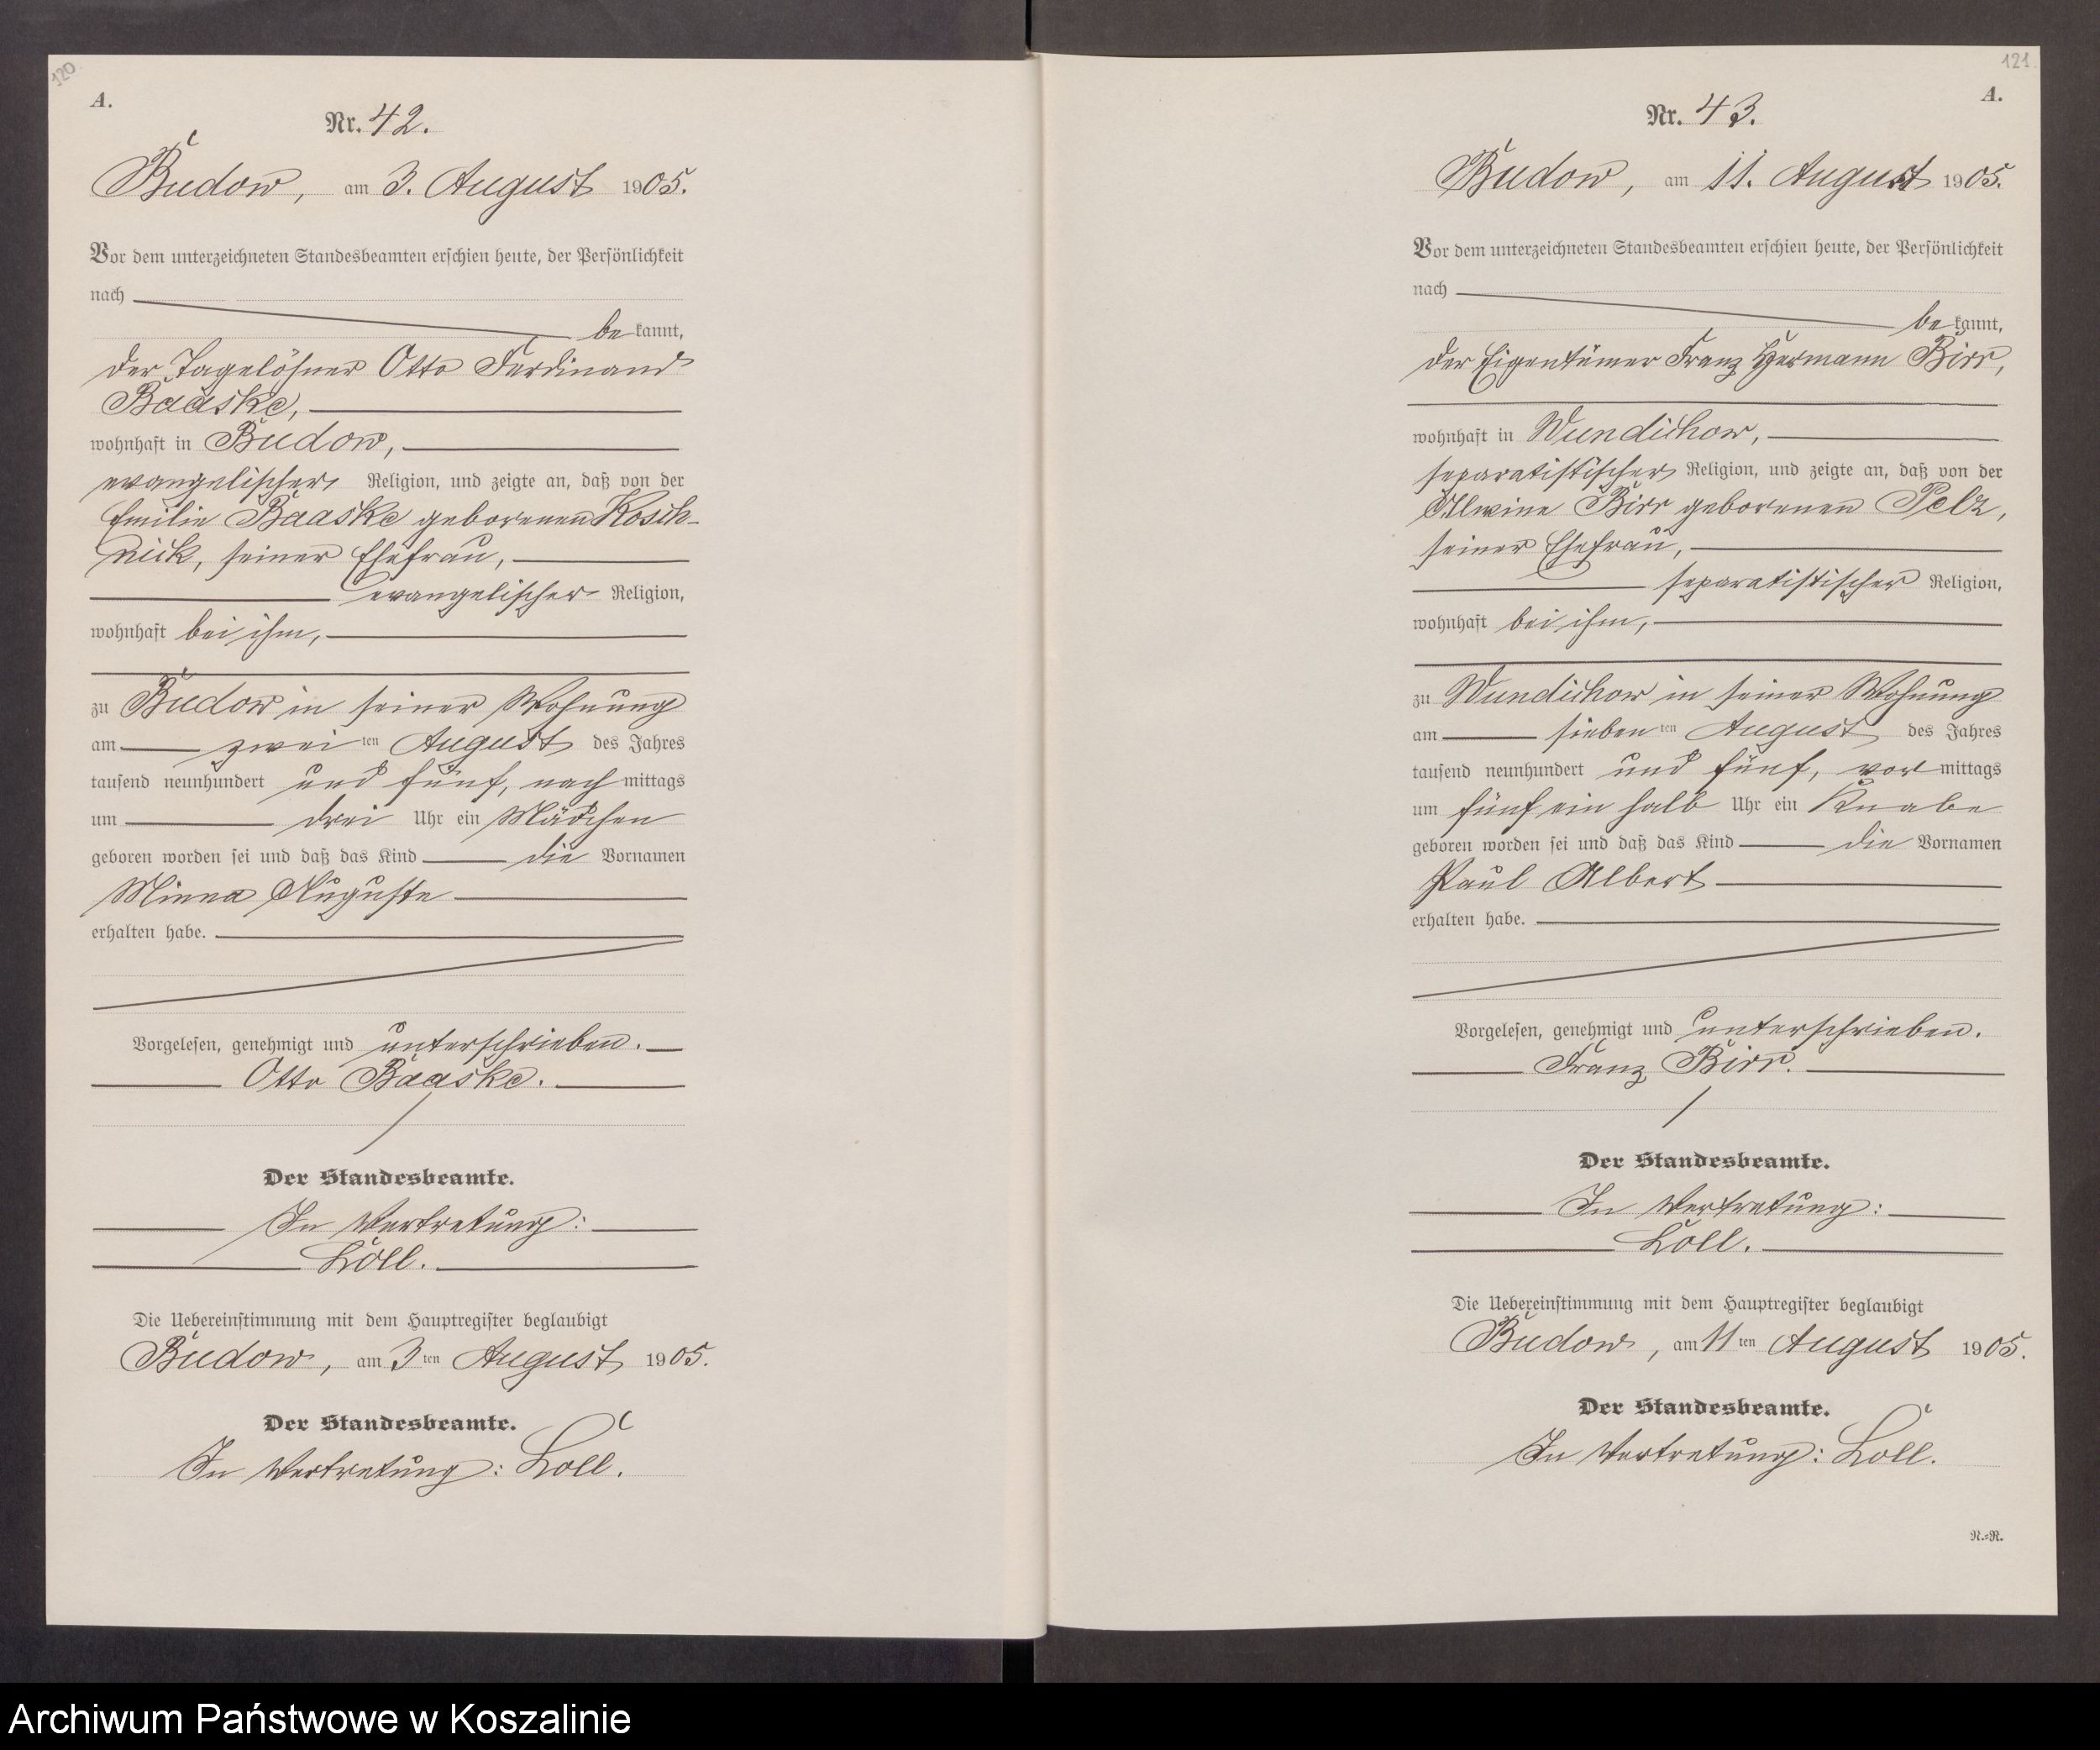 120
A.
Nr. 42.
Budow, am 3. August 1905.
Vor dem unterzeichneten Standesbeamten erschien heute, der Persönlichkeit
nach
bekannt,
der Tagelöhner Otto Ferdinand
Baaske,
wohnhaft in Budow,
evangelischer Religion, und zeigte an, daß von der
Emilie Baaske geborenen Kosch-
nick, seiner Ehefrau,
evangelischer Religion,
wohnhaft bei ihm,
zu Budow in seiner Wohnung
am zweiten August des Jahres
tausend neunhundert und fünf, nachmittags
um drei Uhr ein Mädchen
geboren worden sei und daß das Kind die Vornamen
Minna Auguste
erhalten habe.
Vorgelesen, genehmigt und unterschrieben.
Otto Baaske.
Der Standesbeamte.
In Vertretung:
Loll.
Die Uebereinstimmung mit dem Hauptregister beglaubigt
Budow, am 3ten August 1905.
Der Standesbeamte.
In Vertretung: Loll.
121
A.
Nr. 43.
Budow, am 11. August 1905.
Vor dem unterzeichneten Standesbeamten erschien heute, der Persönlichkeit
nach
bekannt,
der Eigentümer Franz Hermann Birr,
wohnhaft in Wundichow,
separatistischer Religion, und zeigte an, daß von der
Allwine Birr geborenen Pelz,
seiner Ehefrau,
separatistischer Religion,
wohnhaft bei ihm,
zu Wundichow in seiner Wohnung
am siebenten August des Jahres
tausend neunhundert und fünf, vormittags
um fünf ein halb Uhr ein Knabe
geboren worden sei und daß das Kind die Vornamen
Paul Albert
erhalten habe.
Vorgelesen, genehmigt und unterschrieben.
Franz Birr.
Der Standesbeamte.
In Vertretung:
Loll.
Die Uebereinstimmung mit dem Hauptregister beglaubigt
Budow, am 11ten August 1905.
Der Standesbeamte.
In Vertretung: Loll.
N.=R.
Archiwum Państwowe w Koszalinie